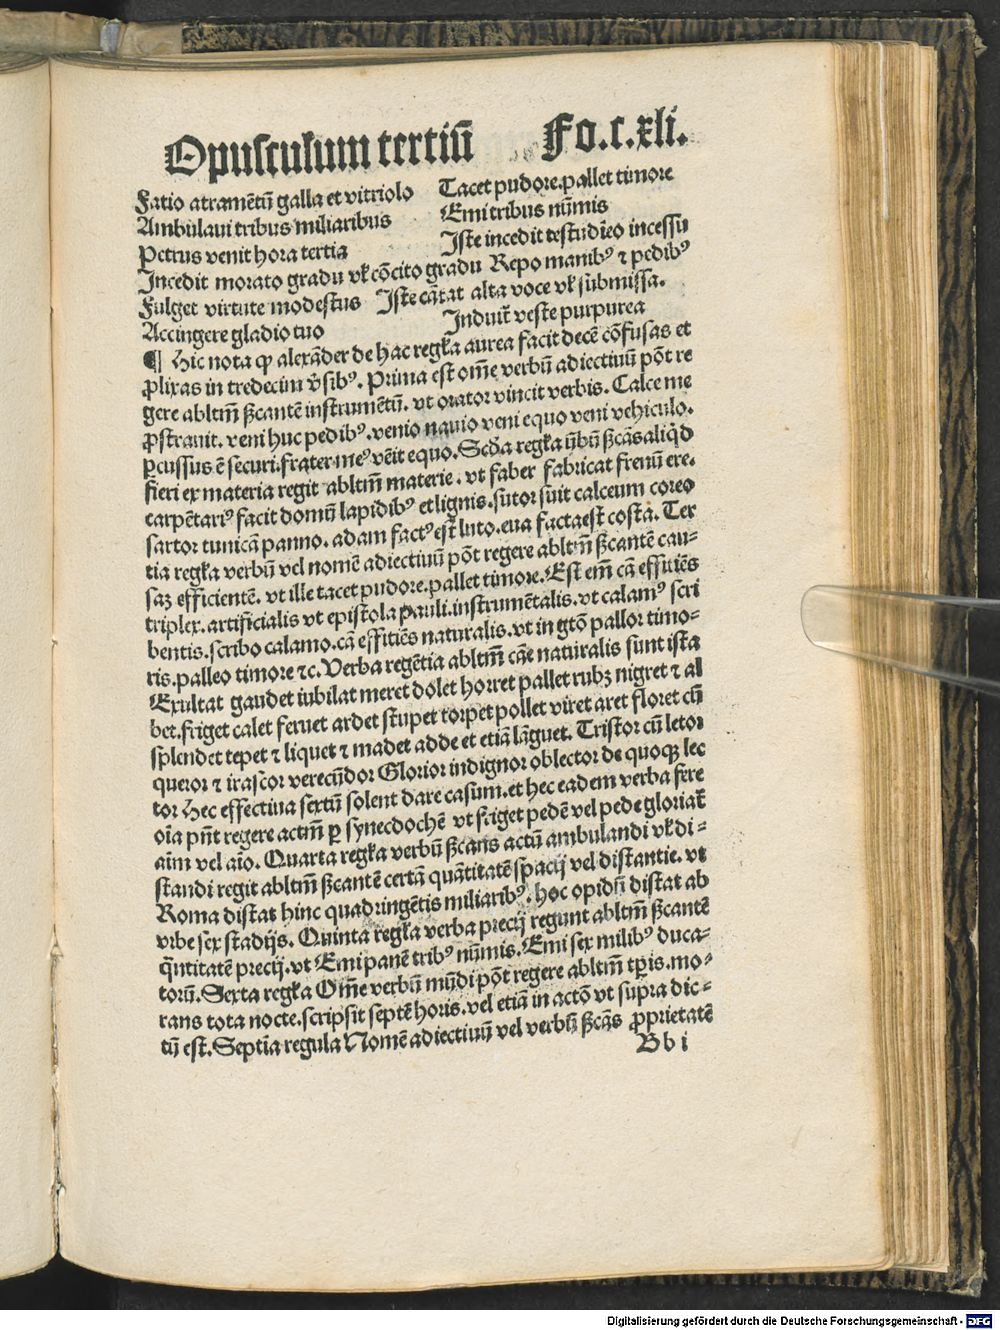 Opusculum tertiū Fo.c.xli.
Fatio atramētū galla et vitriolo Tacet pudore.pallet timore
Ambulaui tribus miliaribus Emi tribus nūmis
Petrus venit hora tertia Iste incedit testudīeo incessu
Incedit morato gradu vł cōcito gradu Repo manibꝰ ⁊ pedibꝰ
Fulget virtute modestus Iste cātat alta voce vł submissa.
Accingere gladio tuo Induit̃ veste purpurea
¶ Hic nota ꝙ alexāder de hac regła aurea facit decē cōfusas et
ꝓlixas in tredecim v̄sibꝰ. Prima est om̄e verbū adiectiuū pōt re
gere abltm̄ ßcantē instrumētū. vt orator vincit verbis. Calce me
ꝓstrauit. veni huc pedibꝰ.venio nauio veni equo veni vehiculo.
ꝑcussus ē securi.frater meꝰ vēit equo. Scd̄a regła v̄bū ßcās aliq̄d
fieri ex materia regit abltm̄ materie. vt faber fabricat frenū ere.
carpētariꝰ facit domū lapidibꝰ et lignis.sutor suit calceum coreo
sartor tunicā panno. adam factꝰ est luto. eua facta est costa. Ter
tia regła verbū vel nomē adiectiuū pōt regere abltm̄ ßcantē cau-
saꝫ efficientē. vt ille tacet pudore.pallet timore. Est em̄ cā effitiēs
triplex. artificialis vt epistola pauli.instrumētalis. vt calamꝰ scri
bentis.scribo calamo. cā effitiēs naturalis.vt in gtō pallor timo-
ris.palleo timore ⁊c. Verba regētia abltm̄ cāe naturalis sunt ista
Exultat gaudet iubilat meret dolet horret pallet rubꝫ nigret ⁊ al
bet.friget calet feruet ardet stupet torpet pollet viret aret floret cū
splendet tepet ⁊ liquet ⁊ madet adde et etiā lāguet. Tristor cū letor
queror ⁊ irascor verecūdor Glorior indignor oblector de quoqꝫ lec
tor Hec effectiua sextū solent dare casum.et hec eadem verba fere
oīa pn̄t regere actm̄ ꝑ synecdochē vt friget pedē vel pede gloriat̃
aīm vel aīo. Quarta regła verbū ßcans actū ambulandi vł di-
standi regit abltm̄ ßcantē certā quātitatē spacij vel distantie. vt
Roma distat hinc quadringētis miliaribꝰ. hoc opidū distat ab
vrbe sex stadijs. Quinta regła verba precij regunt abltm̄ ßcantē
q̄ntitatē precij.vt Emi panē tribꝰ nūmis. Emi sex milibꝰ duca-
torū. Sexta regła Om̄e verbū mūdi pōt regere abltm̄ tꝑis. mo-
rans tota nocte.scripsit septē horis. vel etiā in actō vt supra dic-
tū est. Septīa regula Nomē adiectiuū vel verbū ßcās ꝓprietatē
Bb i
Digitalisierung gefördert durch die Deutsche Forschungsgemeinschaft - DFG